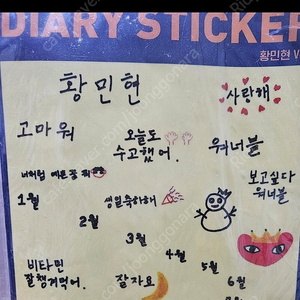 DIARY STICKER
황민현 V
황민현
사랑해
고마워
오늘도
수고했어.
워너블
너처럼 예쁜 꽃
생일축하해
보고싶다
워너블
1월
2월
3월
4월
5월
6월
비타민
잘챙겨먹어.
잘자요